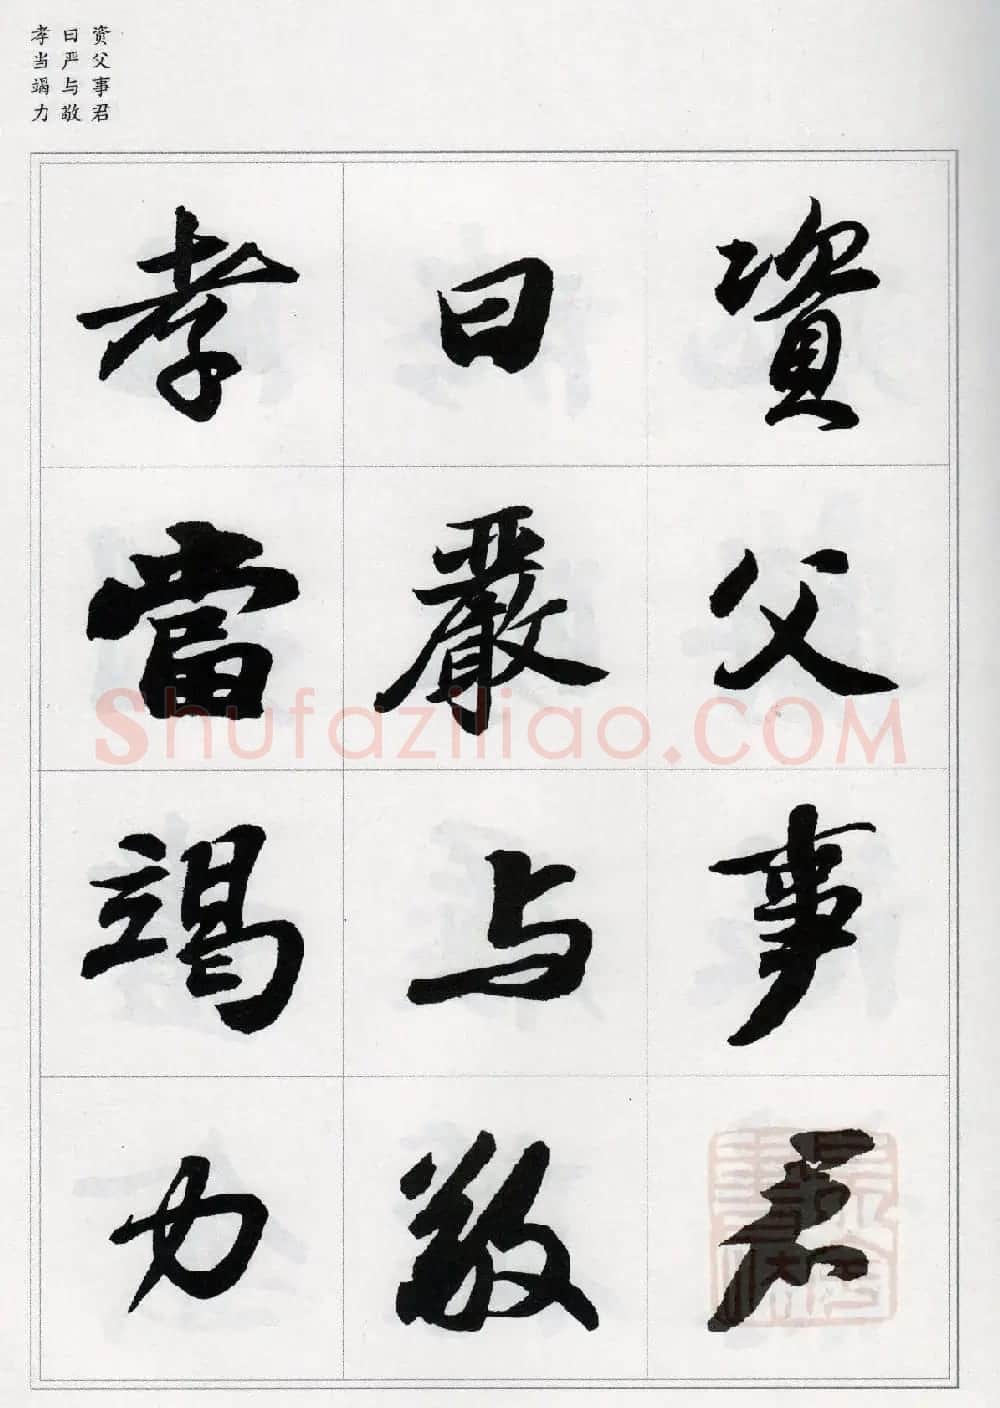 资父事君
曰严与敬
孝当竭力
資父事君
曰嚴与敬
孝當竭力
Shufaziliao.COM